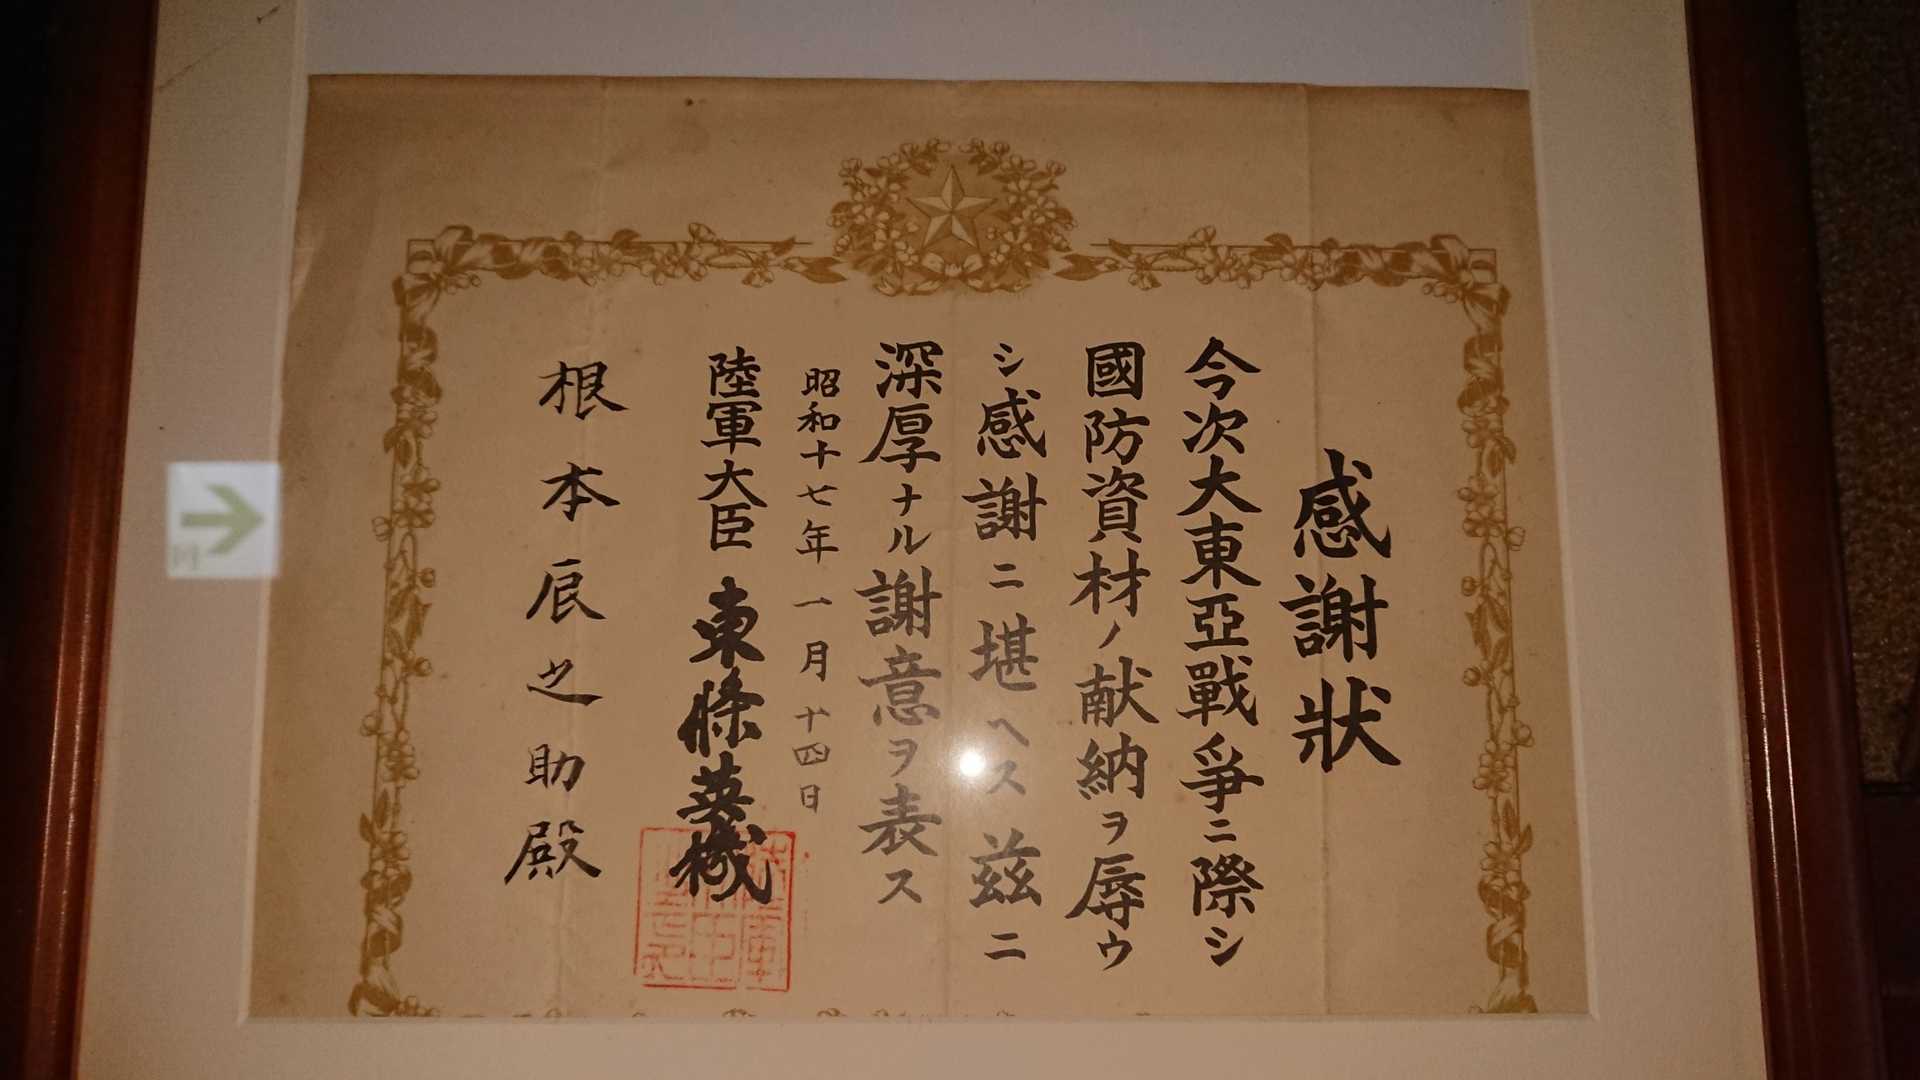 感謝狀
今次大東亞戰爭ニ際シ
國防資材ノ献納ヲ辱ウ
シ感謝ニ堪ヘス茲ニ
深厚ナル謝意ヲ表ス
昭和十七年一月十四日
陸軍大臣 東條英機
根本辰之助殿